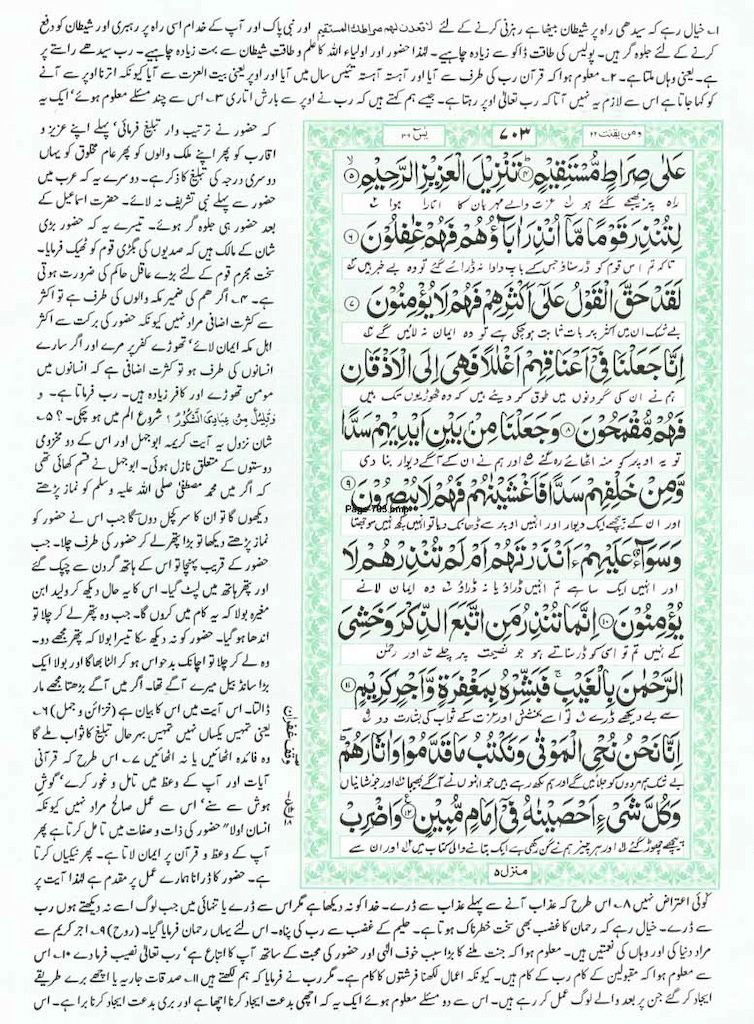 ۱۔ خیال رہے کہ سیدھی راہ پر شیطان بیٹھا ہے رہزنی کرنے کے لئے لاقعدن لہم صراطک المستقیم اور نبی پاک اور آپ کے خدام اسی راہ پر رہبری اور شیطان کو دفع
کرنے کے لئے جلوہ گر ہیں۔ پولیس کی طاقت ڈاکو سے زیادہ چاہیے۔ لہذا حضور اور اولیاء اللہ کا علم و طاقت شیطان سے بہت زیادہ چاہیے۔ رب سیدھے راستے پر
ہے۔ یعنی وہاں ملتا ہے۔ ۲۔ معلوم ہوا کہ قرآن رب کی طرف سے آیا اور آہستہ آہستہ تئیس سال میں آیا اور اوپر یعنی بیت العزت سے آیا کیونکہ اترنا اوپر سے آنے
کو کہا جاتا ہے اس سے لازم یہ نہیں آتا کہ رب تعالیٰ اوپر رہتا ہے۔ جیسے ہم کہتے ہیں کہ رب نے اوپر سے بارش اتاری ۳۔ اس سے چند مسئلے معلوم ہوئے' ایک یہ
ومن یقنت ۲۲
۷۰۳
یٰسٓ ۳۶
عَلٰى صِرَاطٍ مُّسْتَقِيْمٍ ۴ تَنْزِيْلَ الْعَزِيْزِ الرَّحِيْمِ ۵
راہ پر بھیجے گئے ہو عزت والے مہربان کا اتارا ہوا
لِتُنْذِرَ قَوْمًا مَّاۤ اُنْذِرَ اٰبَآؤُهُمْ فَهُمْ غٰفِلُوْنَ ۶
تاکہ تم اس قوم کو ڈر سناؤ جس کے باپ دادا نہ ڈرائے گئے تو وہ بے خبر ہیں
لَقَدْ حَقَّ الْقَوْلُ عَلٰۤى اَكْثَرِهِمْ فَهُمْ لَا يُؤْمِنُوْنَ ۷
بے شک ان میں اکثر پر بات ثابت ہوچکی ہے تو وہ ایمان نہ لائیں گے
اِنَّا جَعَلْنَا فِيْۤ اَعْنَاقِهِمْ اَغْلٰلًا فَهِيَ اِلَى الْاَذْقَانِ
ہم نے ان کی گردنوں میں طوق کر دیئے ہیں کہ وہ ٹھوڑیوں تک ہیں
فَهُمْ مُّقْمَحُوْنَ ۸ وَجَعَلْنَا مِنْۢ بَيْنِ اَيْدِيْهِمْ سَدًّا
تو یہ اوپر کو منہ اٹھائے رہ گئے اور ہم نے ان کے آگے دیوار بنا دی
وَّمِنْ خَلْفِهِمْ سَدًّا فَاَغْشَيْنٰهُمْ فَهُمْ لَا يُبْصِرُوْنَ ۹
Page-703.bmp
اور ان کے پیچھے ایک دیوار اور انہیں اوپر سے ڈھانک دیا تو انہیں کچھ نہیں سوجھتا
وَسَوَآءٌ عَلَيْهِمْ ءَاَنْذَرْتَهُمْ اَمْ لَمْ تُنْذِرْهُمْ لَا
اور انہیں ایک سا ہے تم انہیں ڈراؤ یا نہ ڈراؤ وہ ایمان لانے
يُؤْمِنُوْنَ ۱۰ اِنَّمَا تُنْذِرُ مَنِ اتَّبَعَ الذِّكْرَ وَخَشِيَ
کے نہیں تم تو اسی کو ڈر سناتے ہو جو نصیحت پر چلے اور رحمٰن
الرَّحْمٰنَ بِالْغَيْبِ ۚ فَبَشِّرْهُ بِمَغْفِرَةٍ وَّاَجْرٍ كَرِيْمٍ ۱۱
سے بے دیکھے ڈرے تو اسے بخشش اور عزت کے ثواب کی بشارت دو
اِنَّا نَحْنُ نُحْيِ الْمَوْتٰى وَنَكْتُبُ مَا قَدَّمُوْا وَاٰثَارَهُمْ ؕ
بے شک ہم مردوں کو جلائیں گے اور ہم لکھ رہے ہیں جو انہوں نے آگے بھیجا اور جو نشانیاں
وَكُلَّ شَيْءٍ اَحْصَيْنٰهُ فِيْۤ اِمَامٍ مُّبِيْنٍ ۱۲ وَاضْرِبْ
پیچھے چھوڑ گئے اور ہر چیز ہم نے گن رکھی ہے ایک بتانے والی کتاب میں اور ان سے
منزل ۵
وقف غفران
کہ حضور نے ترتیب وار تبلیغ فرمائی' پہلے اپنے عزیز و
اقارب کو پھر اپنے ملک والوں کو پھر عام مخلوق کو یہاں
دوسری درجہ کی تبلیغ کا ذکر ہے۔ دوسرے یہ کہ عرب میں
حضور سے پہلے نبی تشریف نہ لائے۔ حضرت اسماعیل کے
بعد حضور ہی جلوہ گر ہوئے۔ تیسرے یہ کہ حضور بڑی
شان کے مالک ہیں کہ صدیوں کی بگڑی قوم کو ٹھیک فرمایا۔
سخت مجرم قوم کے لئے بڑے عاقل حاکم کی ضرورت ہوتی
ہے۔ ۴۔ اگر ھم کی ضمیر مکہ والوں کی طرف ہے تو اکثر
سے کثرت اضافی مراد نہیں کیونکہ حضور کی برکت سے اکثر
اہل مکہ ایمان لائے' تھوڑے کفر پر مرے اور اگر سارے
انسانوں کی طرف ہو تو کثرت اضافی ہے کہ انسانوں میں
مومن تھوڑے اور کافر زیادہ ہیں۔ رب فرماتا ہے۔ و
وَقَلِیْلٌ مِّنْ عِبَادِیَ الشَّکُوْرُ' شروع الم میں ہو چکی۔ ؟ ۵۔
شان نزول یہ آیت کریمہ ابوجہل اور اس کے دو مخزومی
دوستوں کے متعلق نازل ہوئی۔ ابوجہل نے قسم کھائی تھی
کہ اگر میں محمد مصطفیٰ صلی اللہ علیہ وسلم کو نماز پڑھتے
دیکھوں گا تو ان کا سر کچل دوں گا جب اس نے حضور کو
نماز پڑھتے دیکھا تو بڑا پتھر لے کر حضور کی طرف چلا۔ جب
حضور کے قریب پہنچا تو اس کے ہاتھ گردن سے چپک گئے
اور پتھر ہاتھ میں لپٹ گیا۔ اس کا یہ حال دیکھ کر ولید ابن
مغیرہ بولا کہ یہ کام میں کروں گا۔ جب وہ پتھر لے کر چلا تو
اندھا ہو گیا۔ حضور کو نہ دیکھ سکا تیسرا بولا کہ پتھر مجھے دو۔
وہ لے کر چلا تو اچانک بدحواس ہو کر الٹا بھاگا اور بولا ایک
بڑا سانڈ بیل میرے آگے تھا۔ اگر میں آگے بڑھتا مجھے مار
ڈالتا۔ اس آیت میں اس کا بیان ہے (خزائن و جمل) ۶۔
یعنی تمہیں یکساں نہیں تمہیں بہر حال تبلیغ کا ثواب ملے گا
وہ فائدہ اٹھائیں یا نہ اٹھائیں ۷۔ اس طرح کہ قرآنی
آیات اور آپ کے وعظ میں تامل و غور کرے' گوش
ہوش سے سنے' اس سے عمل صالح مراد نہیں کیونکہ
انسان اولا" حضور کی ذات و صفات میں تامل کرتا ہے پھر
آپ کے وعظ و قرآن پر ایمان لاتا ہے۔ پھر نیکیاں کرتا
ہے۔ حضور کا ڈرانا ہمارے عمل پر مقدم ہے لہذا آیت پر
کوئی اعتراض نہیں ۸۔ اس طرح کہ عذاب آنے سے پہلے عذاب سے ڈرے۔ خدا کو نہ دیکھا ہے مگر اس سے ڈرے یا تنہائی میں جب لوگ اسے نہ دیکھتے ہوں رب
سے ڈرے۔ خیال رہے کہ رحمان کا غضب بھی سخت خطرناک ہوتا ہے۔ حلیم کے غضب سے رب کی پناہ۔ اس لئے یہاں رحمان فرمایا گیا۔ (روح) ۹۔ اجر کریم سے
مراد دنیا کی اور وہاں کی نعمتیں ہیں۔ معلوم ہوا کہ جنت ملنے کا بڑا سبب خوف الٰہی اور حضور کی محبت کے ساتھ آپ کا اتباع ہے' رب تعالیٰ نصیب فرما دے ۱۰۔ اس
سے معلوم ہوا کہ مقبولین کے کام رب کے کام ہیں۔ کیونکہ اعمال لکھنا فرشتوں کا کام ہے۔ مگر رب نے فرمایا کہ ہم لکھتے ہیں ۱۱۔ صدقات جاریہ یا اچھے برے طریقے
ایجاد کر گئے جن پر بعد والے لوگ عمل کر رہے ہیں۔ اس سے دو مسئلے معلوم ہوئے ایک یہ کہ اچھی بدعت ایجاد کرنا اچھا ہے اور بری بدعت ایجاد کرنا برا ہے۔ اس